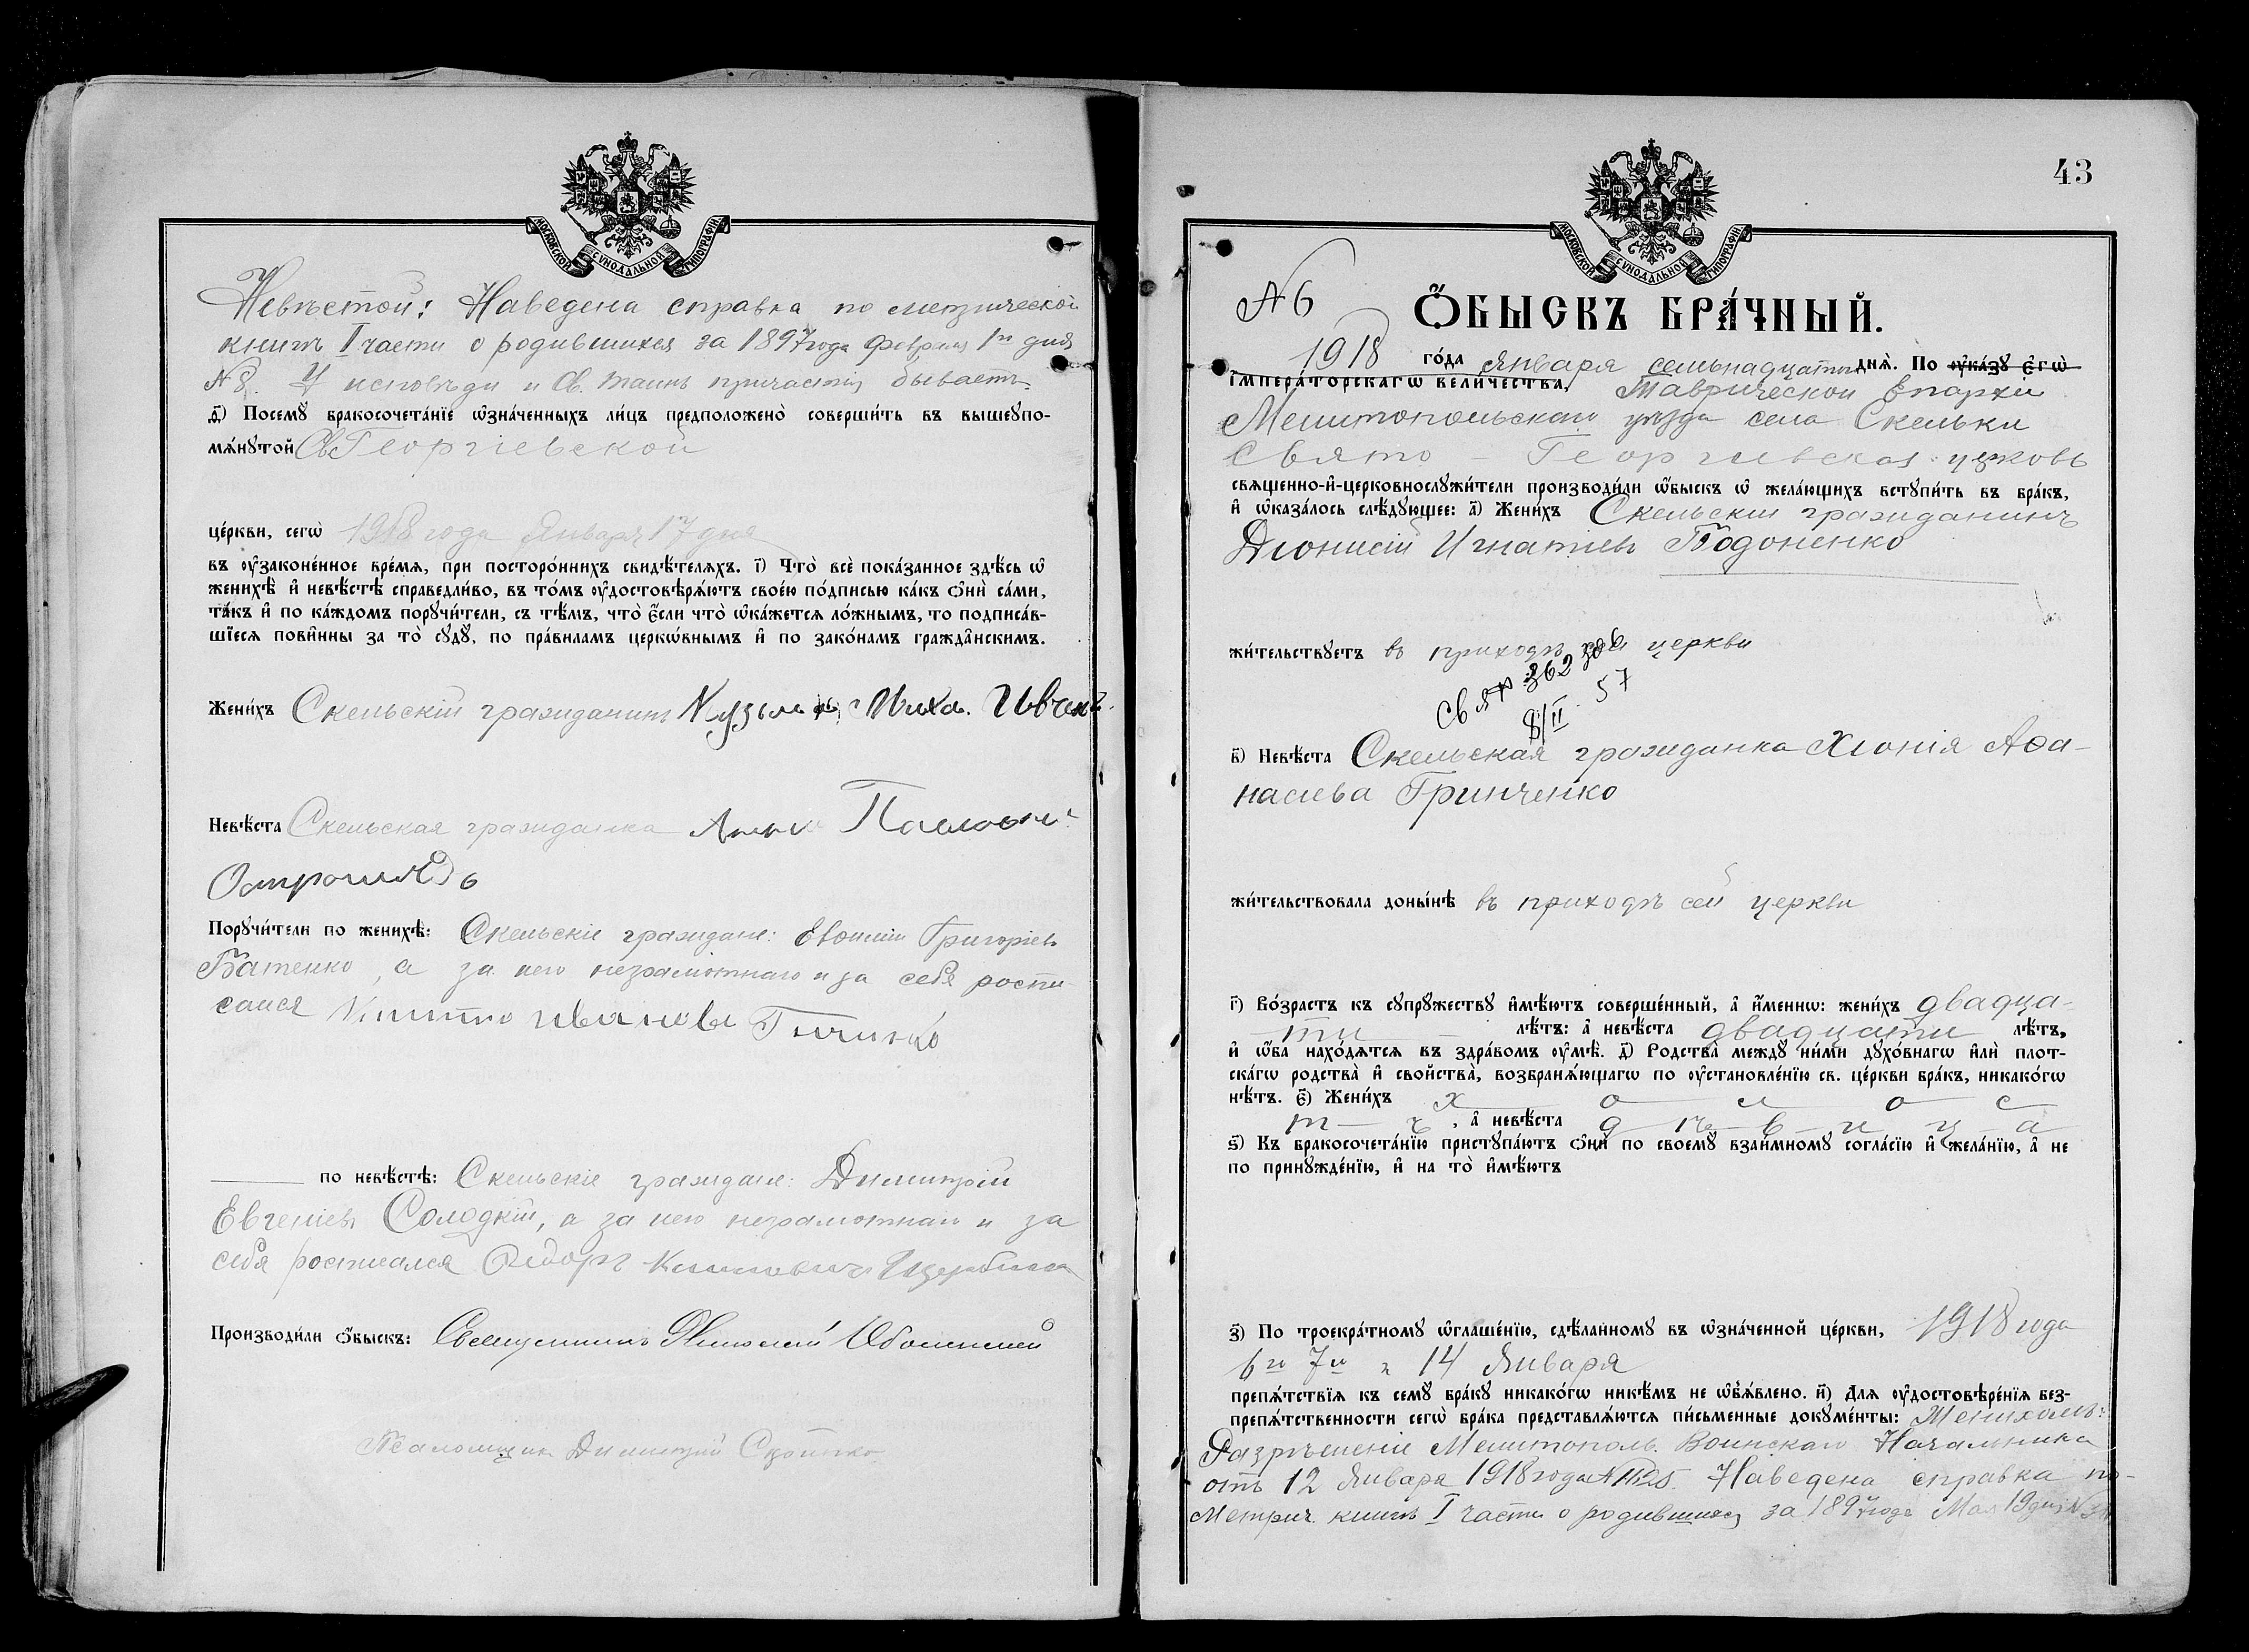 МОСКОВСКОЙ СѴНОДАЛЬНОЙ ТИПОГРАФІИ
Невѣстой: Наведена справка по метрической
книгѣ I части о родившихся за 1897 года Февраля 1го дня
№ 8. У исповѣди и Св. таинъ причастія бываетъ
д҃) Посемꙋ бракосочета́нїе ѡ҆зна́ченныхъ ли́цъ предположено̀ соверши́ть въ вышеꙋпо-
мѧ́нꙋтой Св Георгіевской
це́ркви, сегѡ̀ 1918 года Января 17 дня
въ ᲂу҆законе́нное вре́мѧ, при посторо́ннихъ свидѣ́телѧхъ. і҃) Что̀ всѐ пока́занное здѣ́сь ѡ҆
женихѣ̀ и҆ невѣ́стѣ справедли́во, въ то́мъ ᲂу҆достовѣрѧ́ютъ свое́ю по́дписью ка́къ ѻ҆нѝ са́ми,
та́къ и҆ по ка́ждомъ порꙋчи́тели, съ тѣ́мъ, что̀ є҆́сли что̀ ѡ҆ка́жетсѧ ло́жнымъ, то подписа́в-
шїесѧ пови́нны за то̀ сꙋдꙋ̀, по пра́виламъ церкѡ́внымъ и҆ по зако́намъ гражда̑нскимъ.
Жени́хъ Скельскій гражданинъ Кузьма Миха.
Невѣ́ста Скельская гражданка Анна
Порꙋчи́тели по женихѣ̀: Скельскіе граждане: Евѳимій Григоріевъ
Батенко, а за него неграмотнаго и за себя роспи-
сался Иванова
по невѣ́стѣ: Скельскіе граждане: Димитрій
Евгеніевъ Солодкій, а за него неграмотнаго и за
себя росписался Щербина
Производи́ли ѻ҆́быскъ: Священникъ Николай Оболенскій
Псаломщикъ Димитрій
43
МОСКОВСКОЙ СѴНОДАЛЬНОЙ ТИПОГРАФІИ
№ 6
Ѻ҆́БЫСКЪ БРА́ЧНЫЙ.
1918 го́да Января семьнадцатого днѧ̀. По ᲂу҆ка́зꙋ є҆гѡ̀
і҆мпера́торскагѡ вели́чества, Таврической Епархіи
Мелитопольскаго уѣзда села Скельки
Свято - Георгіевская церковь
свѧщенно-и҆-церковнослꙋжи́тели производи́ли ѻ҆́быскъ ѡ҆ жела́ющихъ встꙋпи́ть въ бра́къ,
и҆ ѡ҆каза́лось слѣ́дꙋющее: а҃) Жени́хъ Скельскій гражданинъ
Діонисій Игнатіевъ Подоненко
жи́тельствꙋетъ въ приходѣ сей церкви
362
8/II 57
в҃) Невѣ́ста Скельская гражданка Хіонія Аѳа-
насіева Гринченко
жи́тельствовала доны́нѣ въ приходѣ сей церкви
г҃) Во́зрастъ къ сꙋпрꙋ́жествꙋ и҆мѣ́ютъ соверше́нный, а҆ и҆́менно: жени́хъ двадца-
ти лѣ́тъ: а҆ невѣ́ста двадцати лѣ́тъ,
и҆ ѻ҆́ба нахо́дѧтсѧ въ здра́вомъ ᲂу҆мѣ̀. д҃) Родства̀ междꙋ̀ ни́ми дꙋхо́внагѡ и҆лѝ плот-
ска́гѡ родства̀ и҆ сво́йства̀, возбранѧ́ющагѡ по ᲂу҆становле́нїю св. це́ркви бра́къ, никако́гѡ
нѣ́тъ. є҃) Жени́хъ х о л о с
т ъ, а҆ невѣ́ста д ѣ в и ц а
ѕ҃) Къ бракосочета́нїю пристꙋпа́ютъ ѻ҆нѝ по своемꙋ̀ взаи́мномꙋ согла́сїю и҆ жела́нїю, а҆ не
по принꙋжде́нїю, и҆ на то̀ и҆мѣ́ютъ
з҃) По троекра́тномꙋ ѡ҆глаше́нїю, сдѣ́ланномꙋ въ ѡ҆зна́ченной це́ркви, 1918 года
6го 7го и 14 Января
препѧ́тствїѧ къ семꙋ̀ бра́кꙋ никако́гѡ никѣ́мъ не ѡ҆бъѧ́влено. и҃) Длѧ ᲂу҆достовѣре́нїѧ без-
препѧ́тственности сегѡ̀ бра́ка представлѧ́ютсѧ пи́сьменные докꙋме́нты: Женихомъ:
Разрѣшеніе Мелитополь. Воинскаго Начальника
отъ 12 Января 1918 года № 1125. Наведена справка по
Метрич. книгѣ I части о родившихся за 1897 года Мая 19 дня